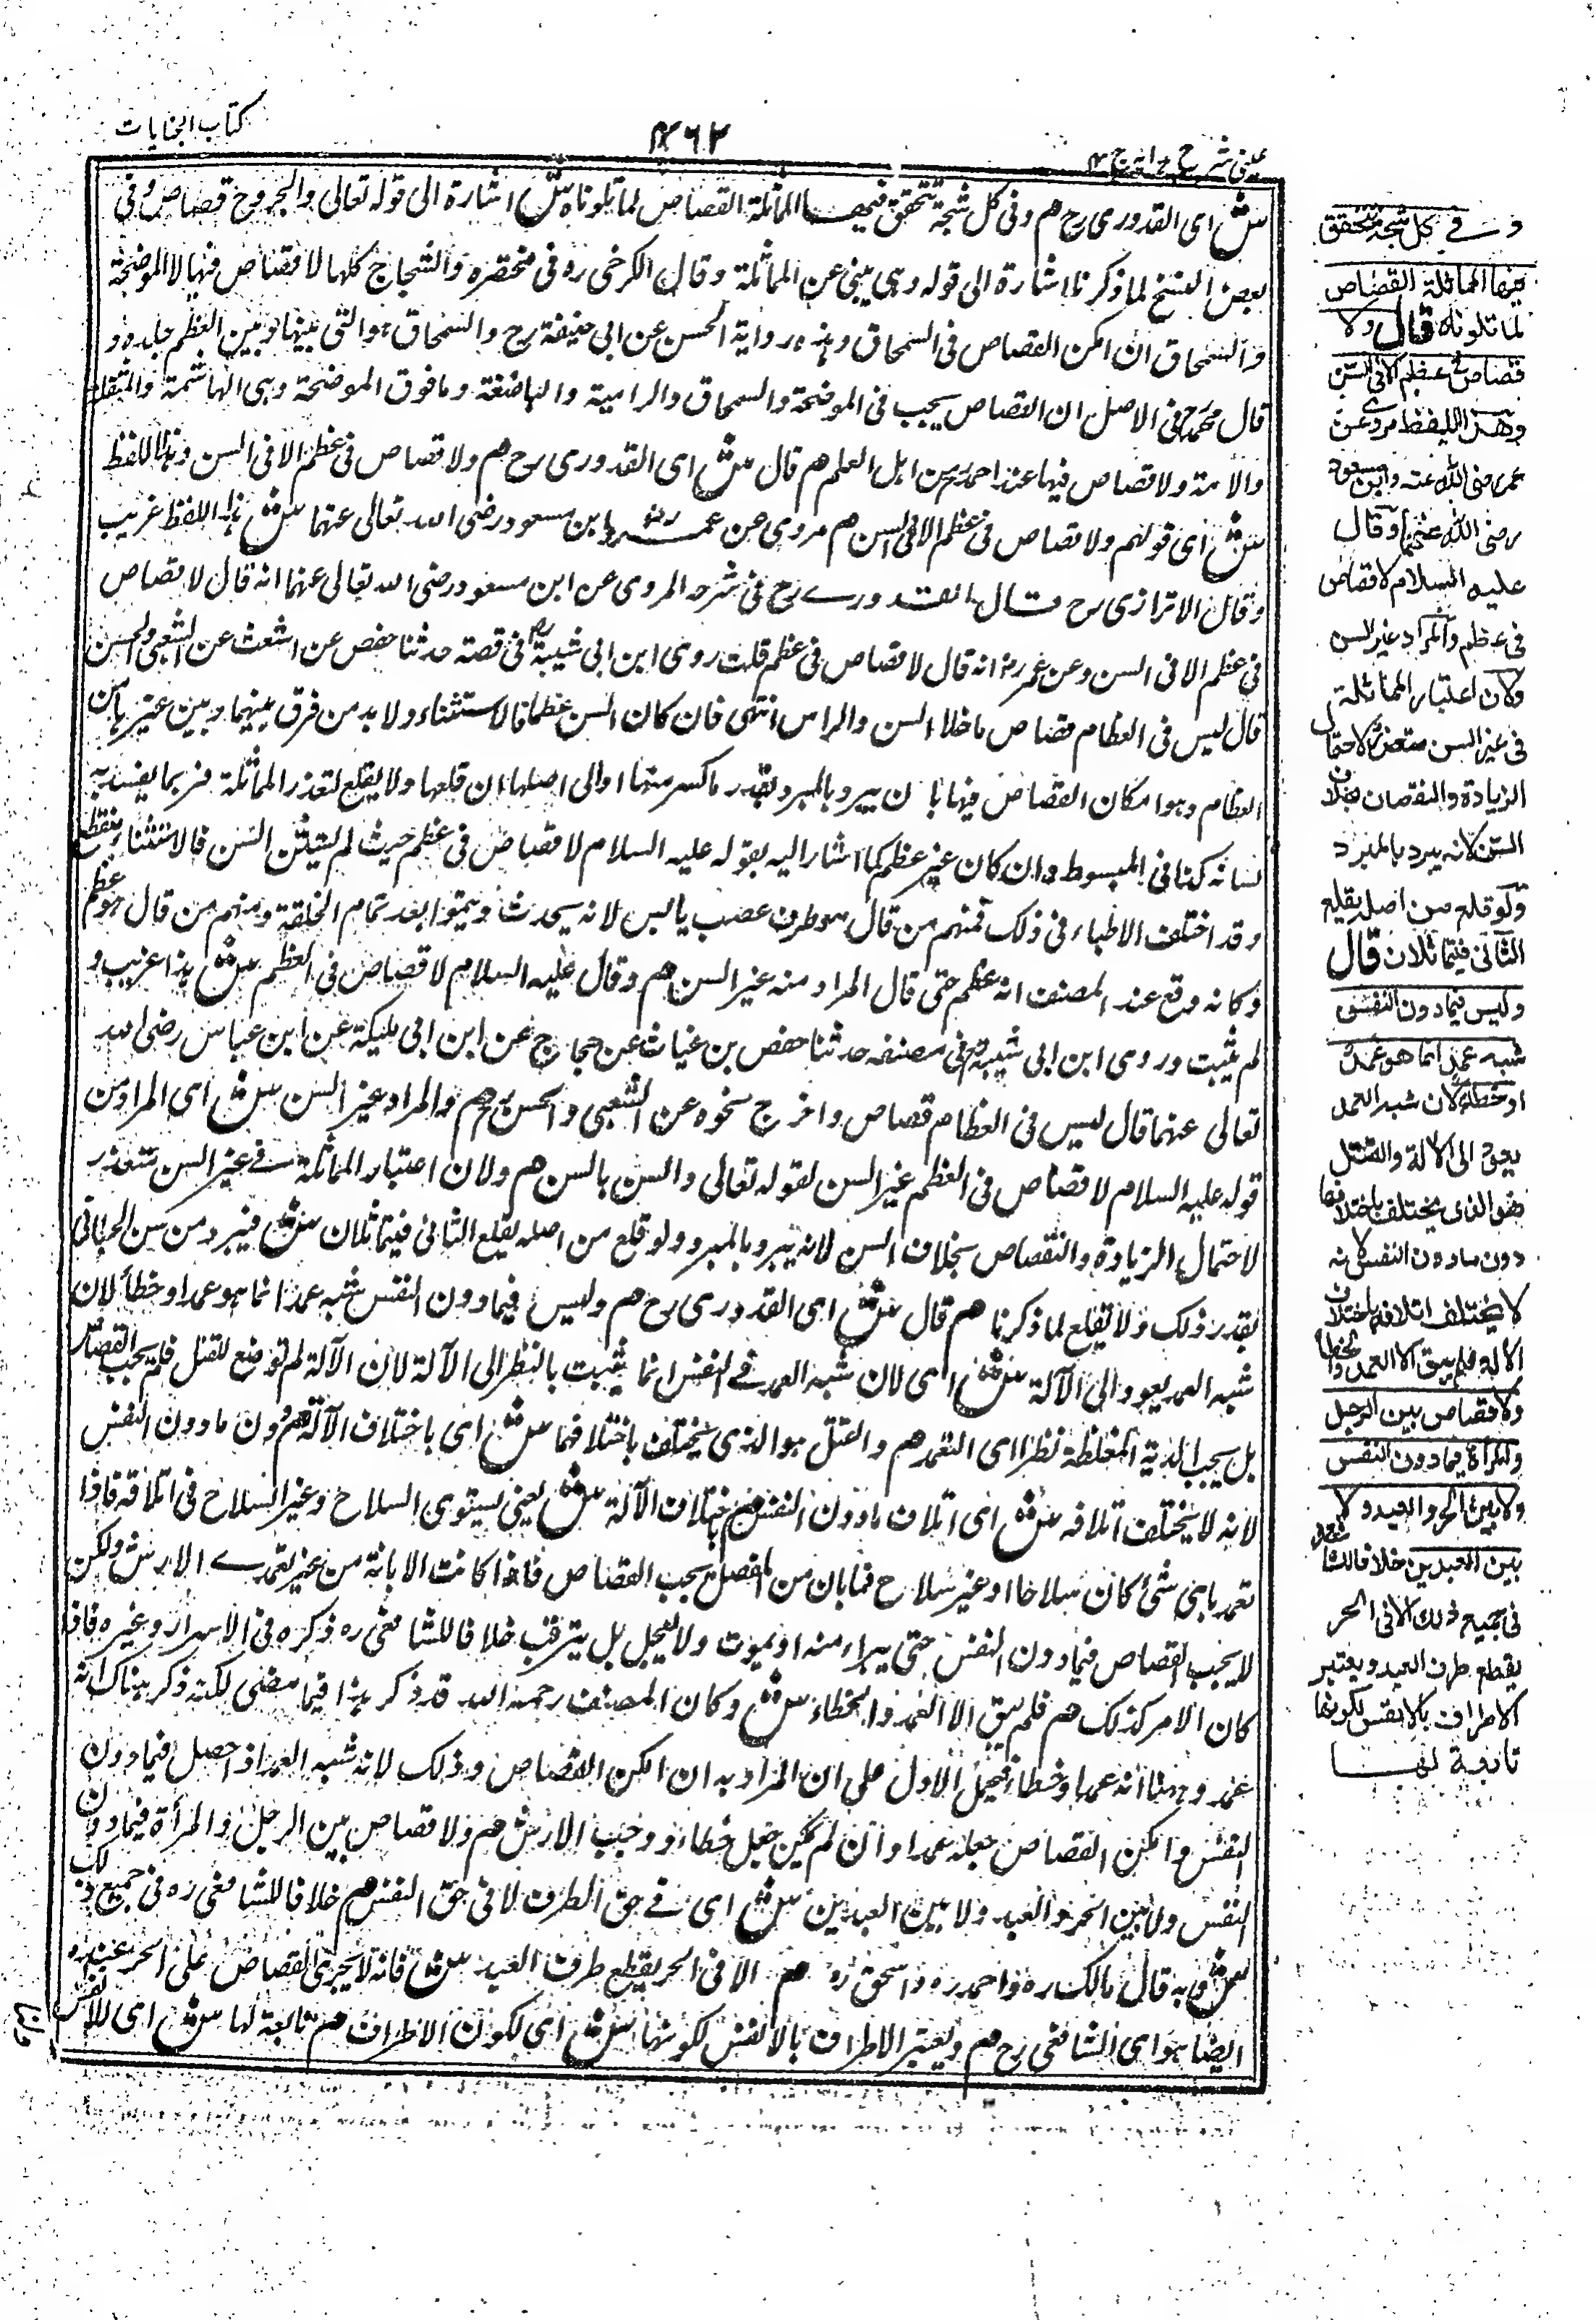 عینی شرح ہدایہ ج ۴
كتاب الجنايات
ش اى القدورى رح هم وفى كل شجة تتحقق فيها المماثلة القصاص لما تلوناه ش اشارة الى قوله تعالى والجروح قصاص وفى
بعض النسخ لما ذكرنا اشارة الى قوله وهى ينبئ عن المماثلة وقال الكرخى ره فى مختصره والشجاج كلها لا قصاص فيها الا الموضحة
والسمحاق ان امكن القصاص فى السمحاق وهذه رواية الحسن عن ابى حنيفة رح والسمحاق هو التى بينها وبين العظم جلدة و
قال محمد رح فى الاصل ان القصاص يجب فى الموضحة والسمحاق والدامية والباضعة وما فوق الموضحة وهى الهاشمة والمنقلة
والآمة ولا قصاص فيها عند احد من اهل العلم هم قال ش اى القدورى رح هم ولا قصاص فى عظم الا فى السن وهذا اللفظ
ش اى قولهم ولا قصاص فى عظم الا فى السن هم مروى عن عمر رض وابن مسعود رضى الله تعالى عنهما ش هذا اللفظ غريب
وقال الاترازى رح قال القدورى رح فى شرحه المروى عن ابن مسعود رضى الله تعالى عنهما انه قال لا قصاص
فى عظم الا فى السن وعن عمر رض انه قال لا قصاص فى عظم قلت روى ابن ابى شيبة ره فى قصة حدثنا حفص عن اشعث عن الشعبى والحسن
قال ليس فى العظام قصاص ما خلا السن والراس انتهى فان كان السن عظما فالاستثناء ولا بد من فرق بينهما وبين غيرها من
العظام وهو امكان القصاص فيها بان يبرد بالمبرد بقدر ما كسر منها او الى اصلها ان قلعها ولا يقلع لتعذر المماثلة فربما يفسد به
لسانه كذا فى المبسوط وان كان غير عظم كما اشار اليه بقوله عليه السلام لا قصاص فى عظم حيث لم يستثن السن فالاستثناء منقطع
وقد اختلف الاطباء فى ذلك فمنهم من قال هو طرف عصب يابس لانه يحدث وينمو بعد تمام الخلقة ومنهم من قال هو عظم
وكانه وقع عند المصنف انه عظم حتى قال المراد منه غير السن هم وقال عليه السلام لا قصاص فى العظم ش هذا غريب و
لم يثبت وروى ابن ابى شيبة ره فى مصنفه حدثنا حفص بن غياث عن حجاج عن ابن ابى مليكة عن ابن عباس رضى الله
تعالى عنهما قال ليس فى العظام قصاص واخرج نحوه عن الشعبى والحسن رح هم والمراد غير السن ش اى المراد من
قوله عليه السلام لا قصاص فى العظم غير السن لقوله تعالى والسن بالسن هم ولان اعتبار المماثلة فى غير السن متعذر
لاحتمال الزيادة والنقصاص بخلاف السن لانه يبرد بالمبرد ولو قلع من اصله يقلع الثانى فيتماثلان ش فيبرد من سن الجانى
بقدر ذلك ولا تقلع لما ذكرنا هم قال ش اى القدورى رح هم وليس فيما دون النفس شبه عمد انما هو عمد او خطأ لان
شبه العمد يعود الى الآلة ش اى لان شبه العمد فى النفس انما يثبت بالنظر الى الآلة لان الآلة لم توضع للقتل فلم يجب القصاص
بل يجب الدية المغلظة نظرا اى التعمد هم والقتل هو الذى يختلف باختلافها ش اى باختلاف الآلة هم دون ما دون النفس
لانه لا يختلف اتلافه ش اى اتلاف ما دون النفس هم باختلاف الآلة ش يعنى يستوى السلاح وغير السلاح فى اتلافه فاذا
تعمد باى شئ كان سلاحا او غير سلاح فما بان من المفصل يجب القصاص فاذا كانت الابانة من غير تعمد الارش ولكن
لا يجب القصاص فيما دون النفس حتى يبراء منه او يموت ولا يعجل بل يترقب خلافا للشافعى ره ذكره فى الاسرار وغيره فاذا
كان الامر كذلك هم فلم يبق الا العمد والخطاء ش وكان المصنف رحمه الله قد ذكر هذا فيما مضى لكنه ذكر هناك انه
عمد وههنا انه عمد او خطاء فيحمل الاول على ان المراد به ان امكن القصاص وذلك لانه شبه العمد اذا حصل فيما دون
النفس وامكن القصاص جعله عمدا وان لم يمكن جعل خطاء ووجب الارش هم ولا قصاص بين الرجل والمرأة فيما دون
النفس ولا بين الحر والعبد ولا بين العبدين ش اى فى حق الطرف لا فى حق النفس هم خلافا للشافعى ره فى جميع ذلك
ش وبه قال مالك ره واحمد ره واسحق ره هم الا فى الحر يقطع طرف العبد ش فانه لا يجرى القصاص على الحر عنده
ايضا هو اى الشافعى رح هم ويعتبر الاطراف بالانفس لكونها ش اى لكون الاطراف هم تابعة لها ش اى للانفس
وفى كل شجة تتحقق
فيها المماثلة القصاص
لما تلوناه قال ولا
قصاص فى عظم الا فى السن
وهذا اللفظ مروى عن
عمر رضى الله عنه وابن مسعود
رضى الله عنهما وقال
عليه السلام لا قصاص
فى عظم والمراد غير السن
ولان اعتبار المماثلة
فى غير السن متعذر لاحتمال
الزيادة والنقصان بخلاف
السن لانه يبرد بالمبرد
ولو قلع من اصله يقلع
الثانى فيتماثلان قال
وليس فيما دون النفس
شبه عمد انما هو عمد
او خطأ لان شبه العمد
يعود الى الآلة والقتل
هو الذى يختلف باختلافها
دون ما دون النفس لانه
لا يختلف اتلافه باختلاف
الآلة فلم يبق الا العمد والخطأ
ولا قصاص بين الرجل
والمرأة فيما دون النفس
ولا بين الحر والعبد ولا
بين العبدين خلافا للشافعى
فى جميع ذلك الا فى الحر
يقطع طرف العبد ويعتبر
الاطراف بالانفس لكونها
تابعة لها